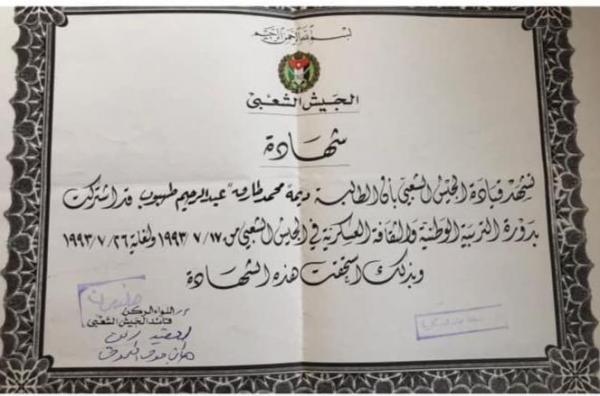 بسم الله الرحمن الرحيم
الجيش الشعبي
شهادة
تشهد قيادة الجيش الشعبي بأن الطالبة ديمة محمد طارق "عبدالرحيم طهبوب قد اشتركت
بدورة التربية الوطنية والثقافة العسكرية في الجيش الشعبي من ١٧ / ٧ / ١٩٩٣ ولغاية ٢٦ / ٧ / ١٩٩٣
وبذلك استحقت هذه الشهادة
اللواء الركن
قائد الجيش الشعبي
العقيد الركن